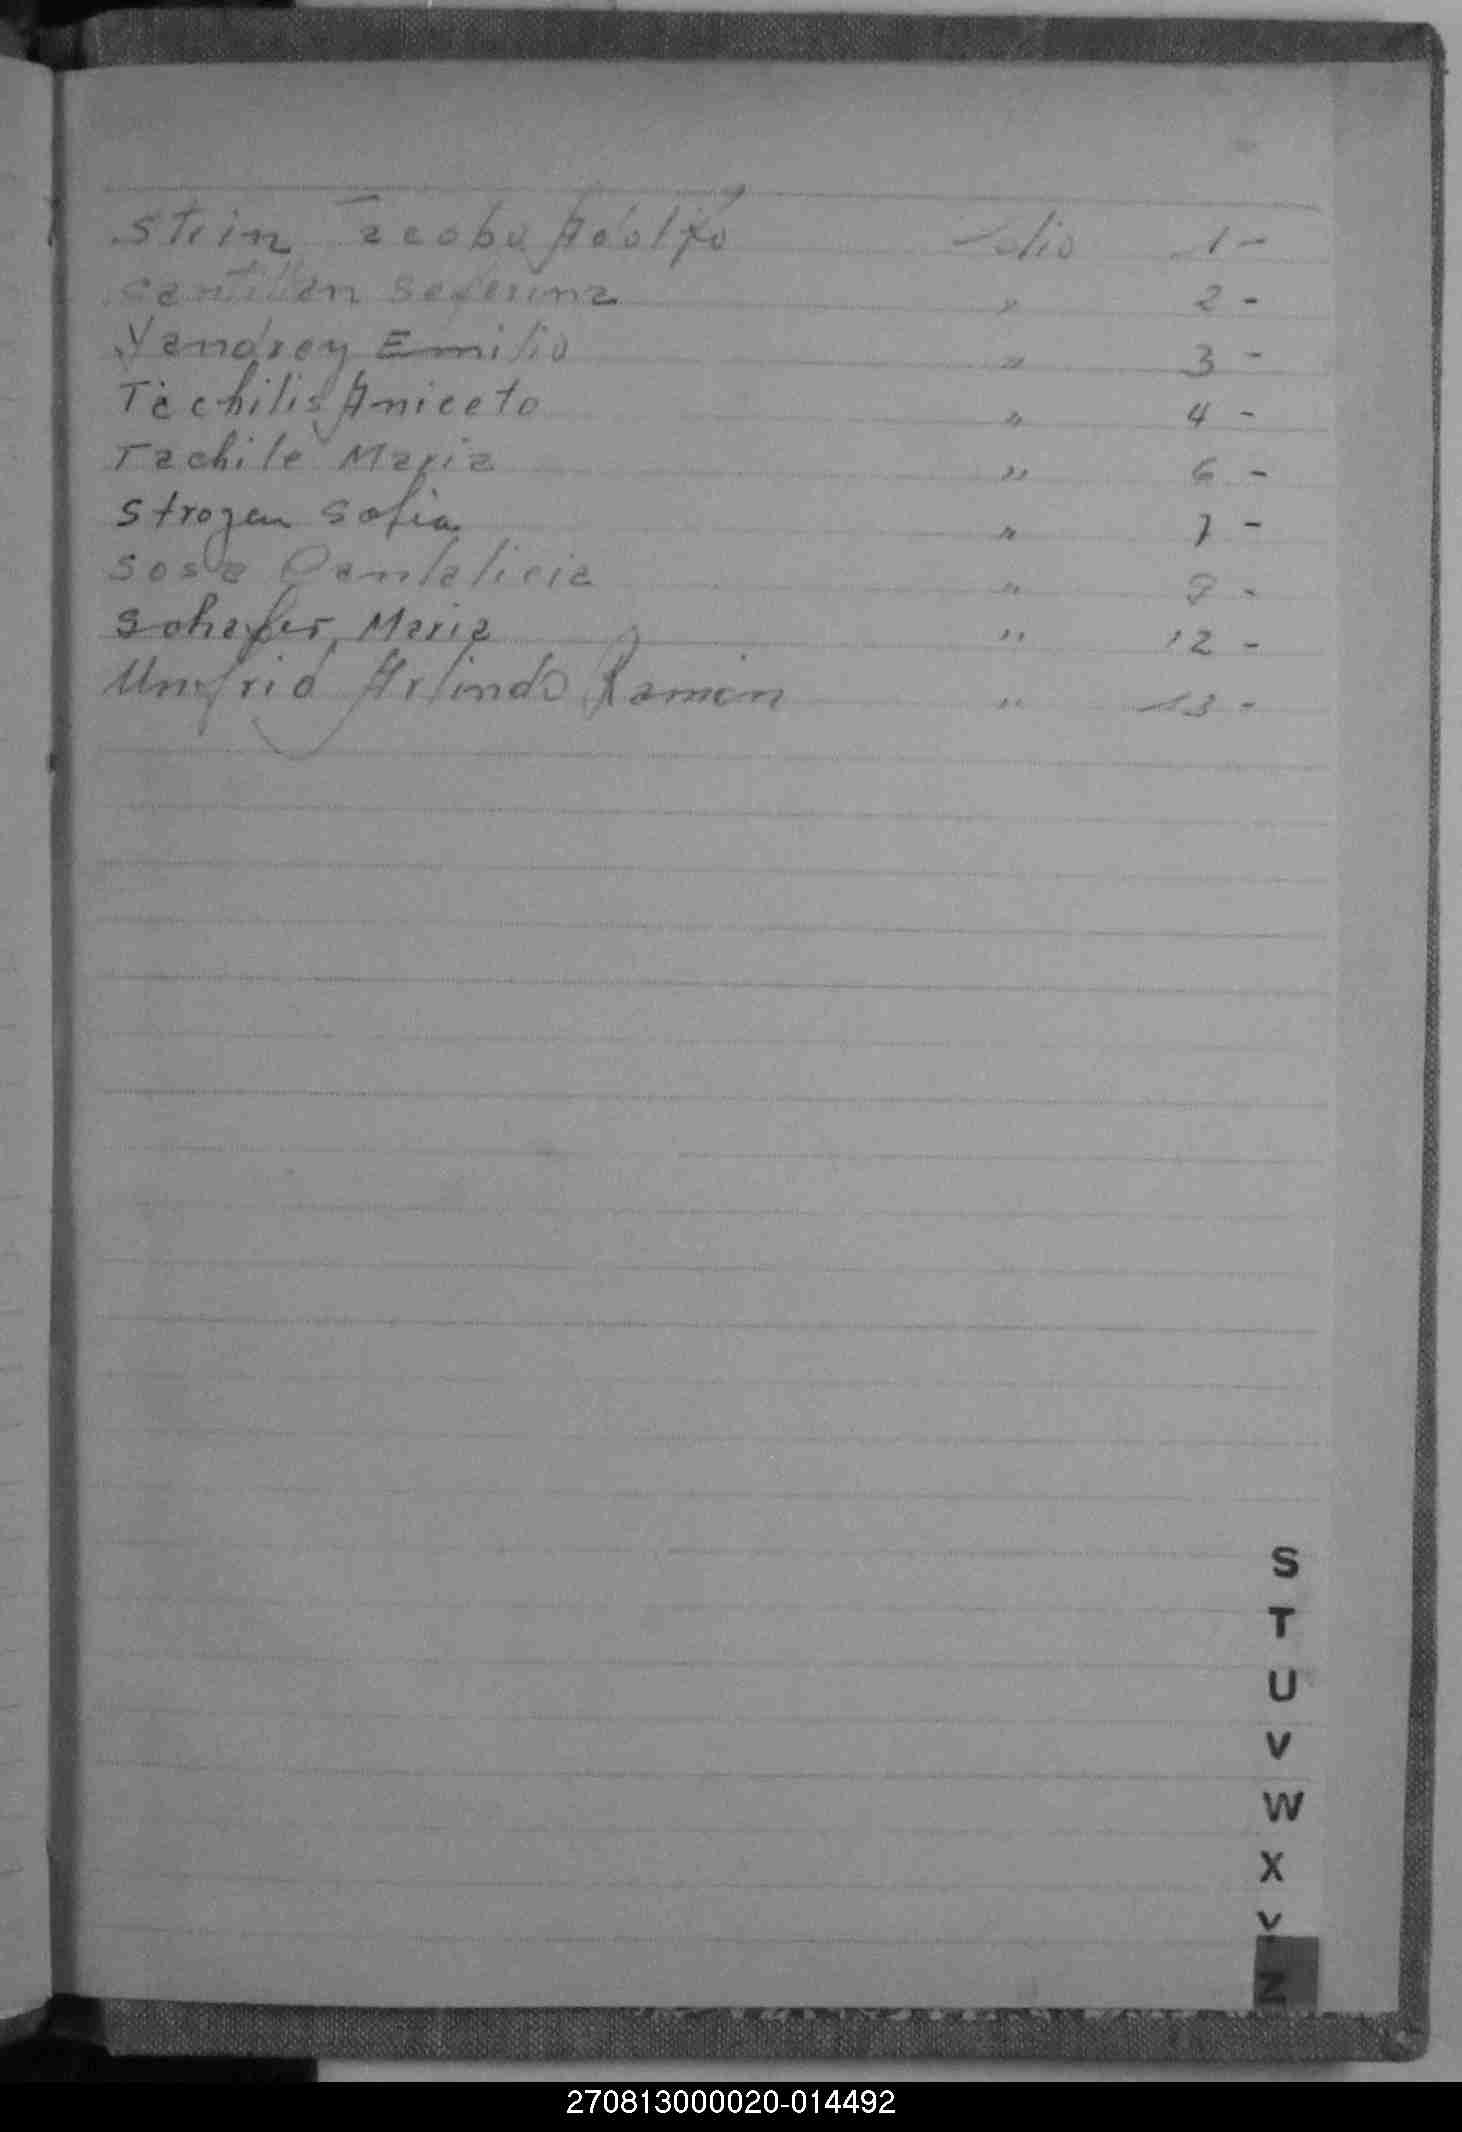 Stein Jacobo Adolfo folio 1 -
Santillan Seferina " 2 -
Yandrey Emilio " 3 -
Techilis Aniceto " 4 -
Tachile Maria " 6 -
Strozen Sofia " 7 -
Sosa Pantalicia " 9 -
Schafer Maria " 12 -
Umfrid Arlindo Ramon " 13 -
S
T
U
V
W
X
Y
Z
270813000020-014492